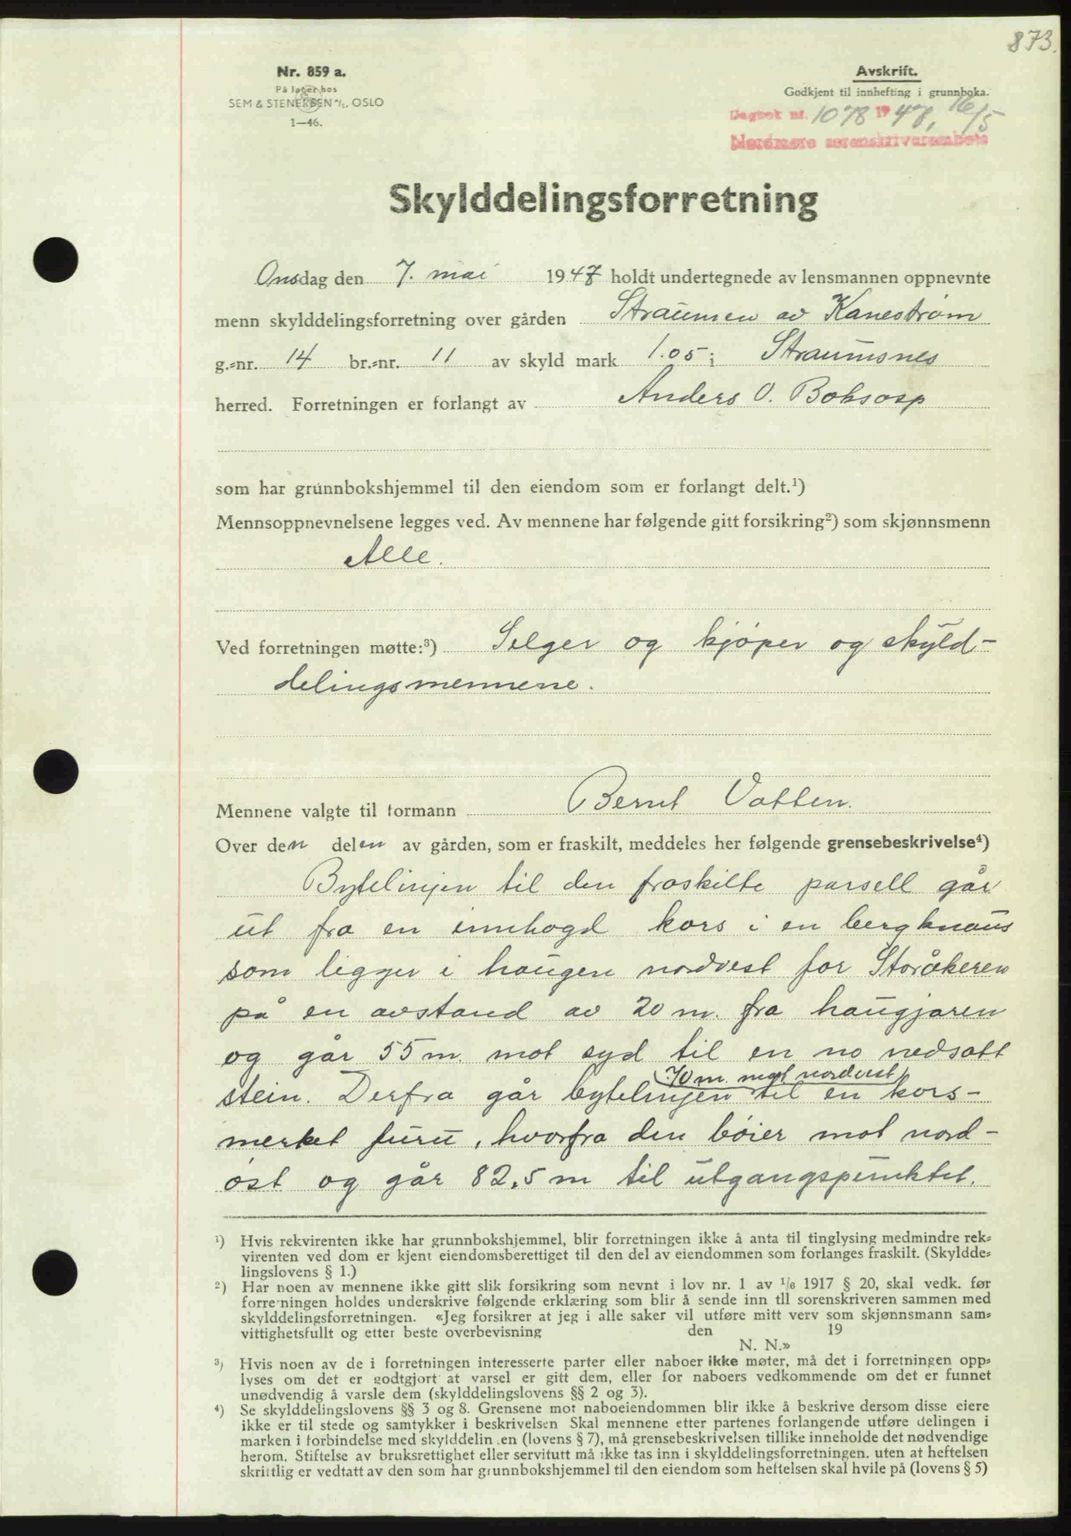 873.
Nr. 859 a.
På lager hos
SEM & STENERSEN A/S, OSLO
1—46.
Avskrift.
Godkjent til innhefting i grunnboka.
Dagbok nr. 1078 1947, 16/5
Nordmøre sorenskriverembete
Skylddelingsforretning
Onsdag den 7. mai 1947 holdt undertegnede av lensmannen oppnevnte
menn skylddelingsforretning over gården Straumen av Kanestrøm
g.-nr. 14 br.-nr. 11 av skyld mark 1.05 i Straumsnes
herred. Forretningen er forlangt av Anders O. Boksasp
som har grunnbokshjemmel til den eiendom som er forlangt delt.¹)
Mennsoppnevnelsene legges ved. Av mennene har følgende gitt forsikring²) som skjønnsmenn
Alle.
Ved forretningen møtte:³) Selger og kjøper og skyld-
delingsmennene.
Mennene valgte til formann Bernt Vatten.
Over den delen av gården, som er fraskilt, meddeles her følgende grensebeskrivelse⁴)
Bytelinjen til den fraskilte parsell går
ut fra en innhogd kors i en bergknaus
som ligger i haugen nordvest for Storåkeren
på en avstand av 20 m. fra haugjaren
og går 55 m. mot syd til en no nedsatt
(70 m. mot nordvest)
stein. Derfra går bytelinjen til en kors-
merket furu, hvorfra den bøier mot nord-
øst og går 82,5 m til utgangspunktet.
¹) Hvis rekvirenten ikke har grunnbokshjemmel, blir forretningen ikke å anta til tinglysing medmindre rek-
virenten ved dom er kjent eiendomsberettiget til den del av eiendommen som forlanges fraskilt. (Skyldde-
lingslovens § 1.)
²) Har noen av mennene ikke gitt slik forsikring som nevnt i lov nr. 1 av 1/6 1917 § 20, skal vedk. før
forretningen holdes underskrive følgende erklæring som blir å sende inn til sorenskriveren sammen med
skylddelingsforretningen. «Jeg forsikrer at jeg i alle saker vil utføre mitt verv som skjønnsmann sam-
vittighetsfullt og etter beste overbevisning den 19
N. N.»
³) Hvis noen av de i forretningen interesserte parter eller naboer ikke møter, må det i forretningen opp-
lyses om det er godtgjort at varsel er gitt dem, eller for naboers vedkommende om det er funnet
unødvendig å varsle dem (skylddelingslovens §§ 2 og 3).
⁴) Se skylddelingslovens §§ 3 og 8. Grensene mot naboeiendommen blir ikke å beskrive dersom disse eiere
ikke er til stede og samtykker i beskrivelsen Skal mennene etter partenes forlangende utføre delingen i
marken i forbindelse med skylddelin en (lovens § 7), må grensebeskrivelsen tillike inneholde det nødvendige
herom. Stiftelse av bruksrettighet eller servitutt må ikke tas inn i skylddelingsforretningen. uten at heftelsen
skriftlig er vedtatt av den som har grunnbokshjemmel til den eiendom som heftelsen skal hvile på (lovens § 5)